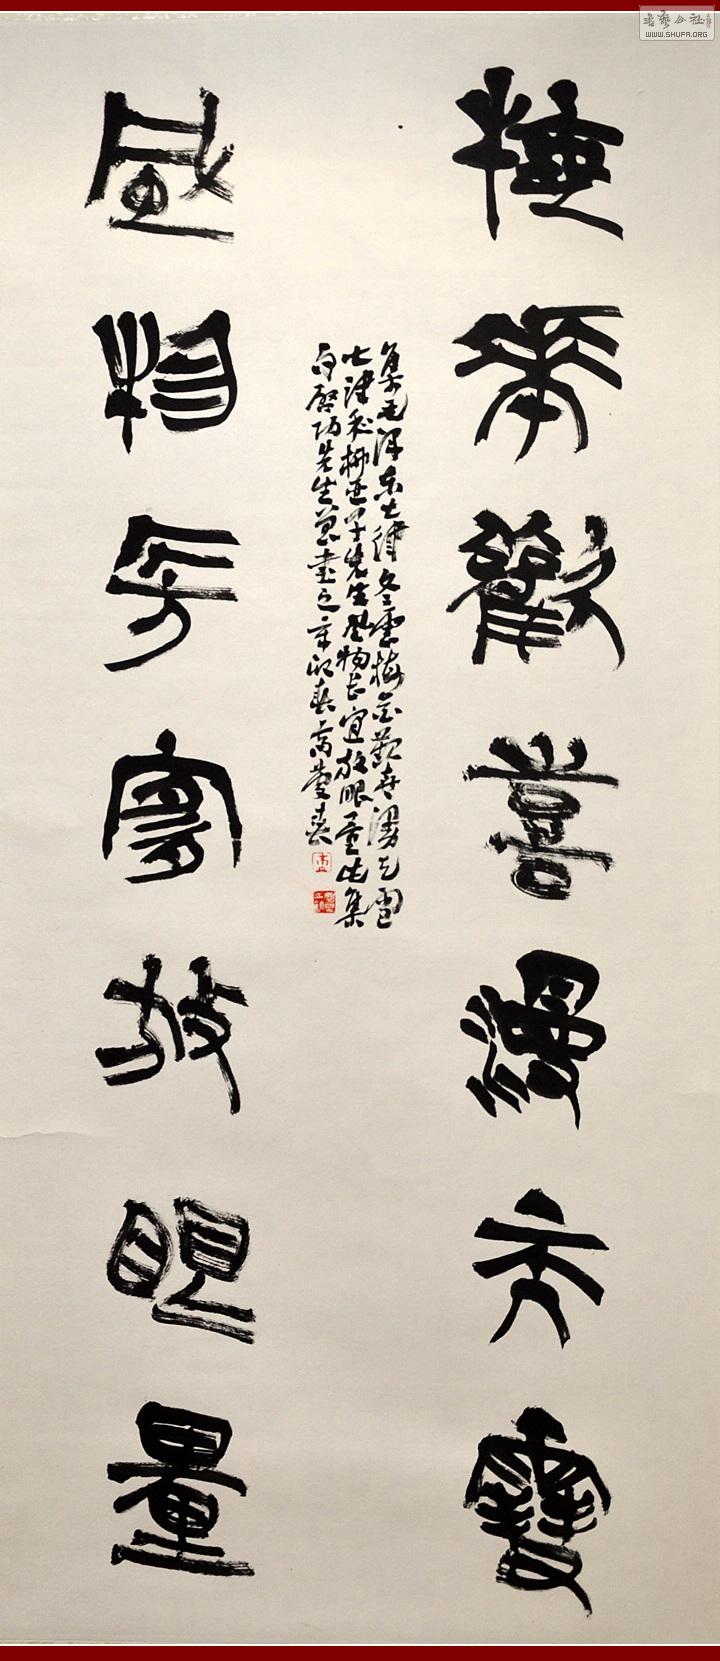 書藝公社
WWW.SHUFA.ORG
梅花歡喜漫天雪
風物長宜放眼量
集毛澤東七律冬雲梅花歡喜漫天雪
七律和柳亞子先生風物長宜放眼量此集
句啓功先生曾書之辛卯春高慶春